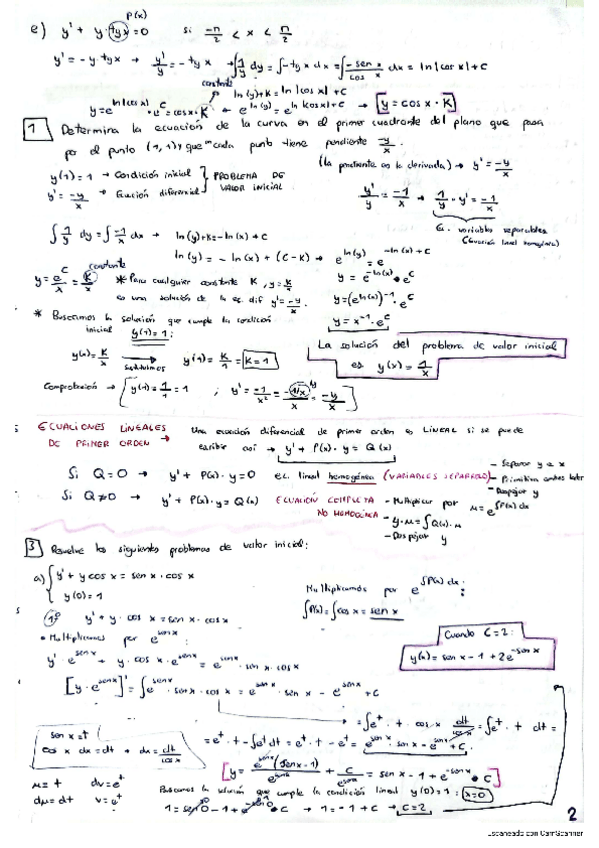 P(x)
e) y' + y·tgx = 0 si -π/2 < x < π/2
y' = -y·tgx → y'/y = -tgx → ∫1/y dy = ∫-tgx dx = ∫-sen x/cos x dx = ln|cos x| + C
constante ln(y)+K = ln|cos x| + C
y = e^ln|cos x| · e^C = cos x · K ← e^ln(y) = e^ln|cos x|+C → [y = cos x · K]
1 Determina la ecuación de la curva en el primer cuadrante del plano que pasa
por el punto (1,1) y que en cada punto tiene pendiente -y/x.
(la pendiente es la derivada) → y' = -y/x
y(1) = 1 → Condición inicial } PROBLEMA DE
y' = -y/x → Ecuación diferencial } VALOR INICIAL
y'/y = -1/x → 1/y · y' = -1/x
Ec. variables separables
(Ecuación lineal homogénea)
∫1/y dy = ∫-1/x dx → ln(y)+K = -ln(x) + C
ln(y) = -ln(x) + (C-K) → e^ln(y) = e^-ln(x)+C
constante
y = e^C/x = K/x * Para cualquier constante K, y = K/x y = e^-ln(x) · e^C
es una solución de la ec. dif y' = -y/x. y = (e^ln(x))^-1 · e^C
* Buscamos la solución que cumple la condición y = x^-1 · e^C
inicial y(1) = 1:
La solución del problema de valor inicial
es y(x) = 1/x
y(x) = K/x → sustituimos y(1) = K/1 = K = 1
Comprobación → [y(1) = 1/1 = 1 ; y' = -1/x² = -1/x/x = -y/x]
ECUACIONES LINEALES
DE PRIMER ORDEN → Una ecuación diferencial de primer orden es LINEAL si se puede
escribir así → y' + P(x)·y = Q(x)
Si Q=0 → y' + P(x)·y = 0 ec. lineal homogénea (VARIABLES SEPARABLES)
- Separar y e x
- Primitiva ambos lados
- Despejar y
Si Q≠0 → y' + P(x)·y = Q(x) ECUACIÓN COMPLETA
NO HOMOGÉNEA
- Multiplicar por μ = e^∫P(x) dx
- y·μ = ∫Q(x)·μ
- Despejar y
3 Resuelve los siguientes problemas de valor inicial:
a) { y' + y cos x = sen x · cos x
y(0) = 1
Multiplicamos por e^∫P(x) dx:
∫P(x) = ∫cos x = sen x
1º y' + y · cos x = sen x · cos x
• Multiplicamos por e^sen x:
Cuando C=2:
y(x) = sen x - 1 + 2e^-sen x
y' · e^sen x + y · cos x · e^sen x = e^sen x · sen x · cos x
[y · e^sen x]' = ∫e^sen x · sen x · cos x = e^sen x · sen x - e^sen x + C
= ∫e^t · t · cos x dt/cos x = ∫e^t · t dt =
sen x = t
cos x dx = dt → dx = dt/cos x
= e^t · t - ∫e^t dt = e^t · t - e^t = e^sen x · sen x - e^sen x + C.
[y = e^sen x (sen x - 1)/e^sen x + C/e^sen x = sen x - 1 + e^-sen x · C]
μ = t dv = e^t
dμ = dt v = e^t
Buscamos la solución que cumple la condición lineal y(0) = 1 : x=0
1 = sen 0 - 1 + e^-sen 0 · C → 1 = -1 + C → C=2
2
Escaneado con CamScanner